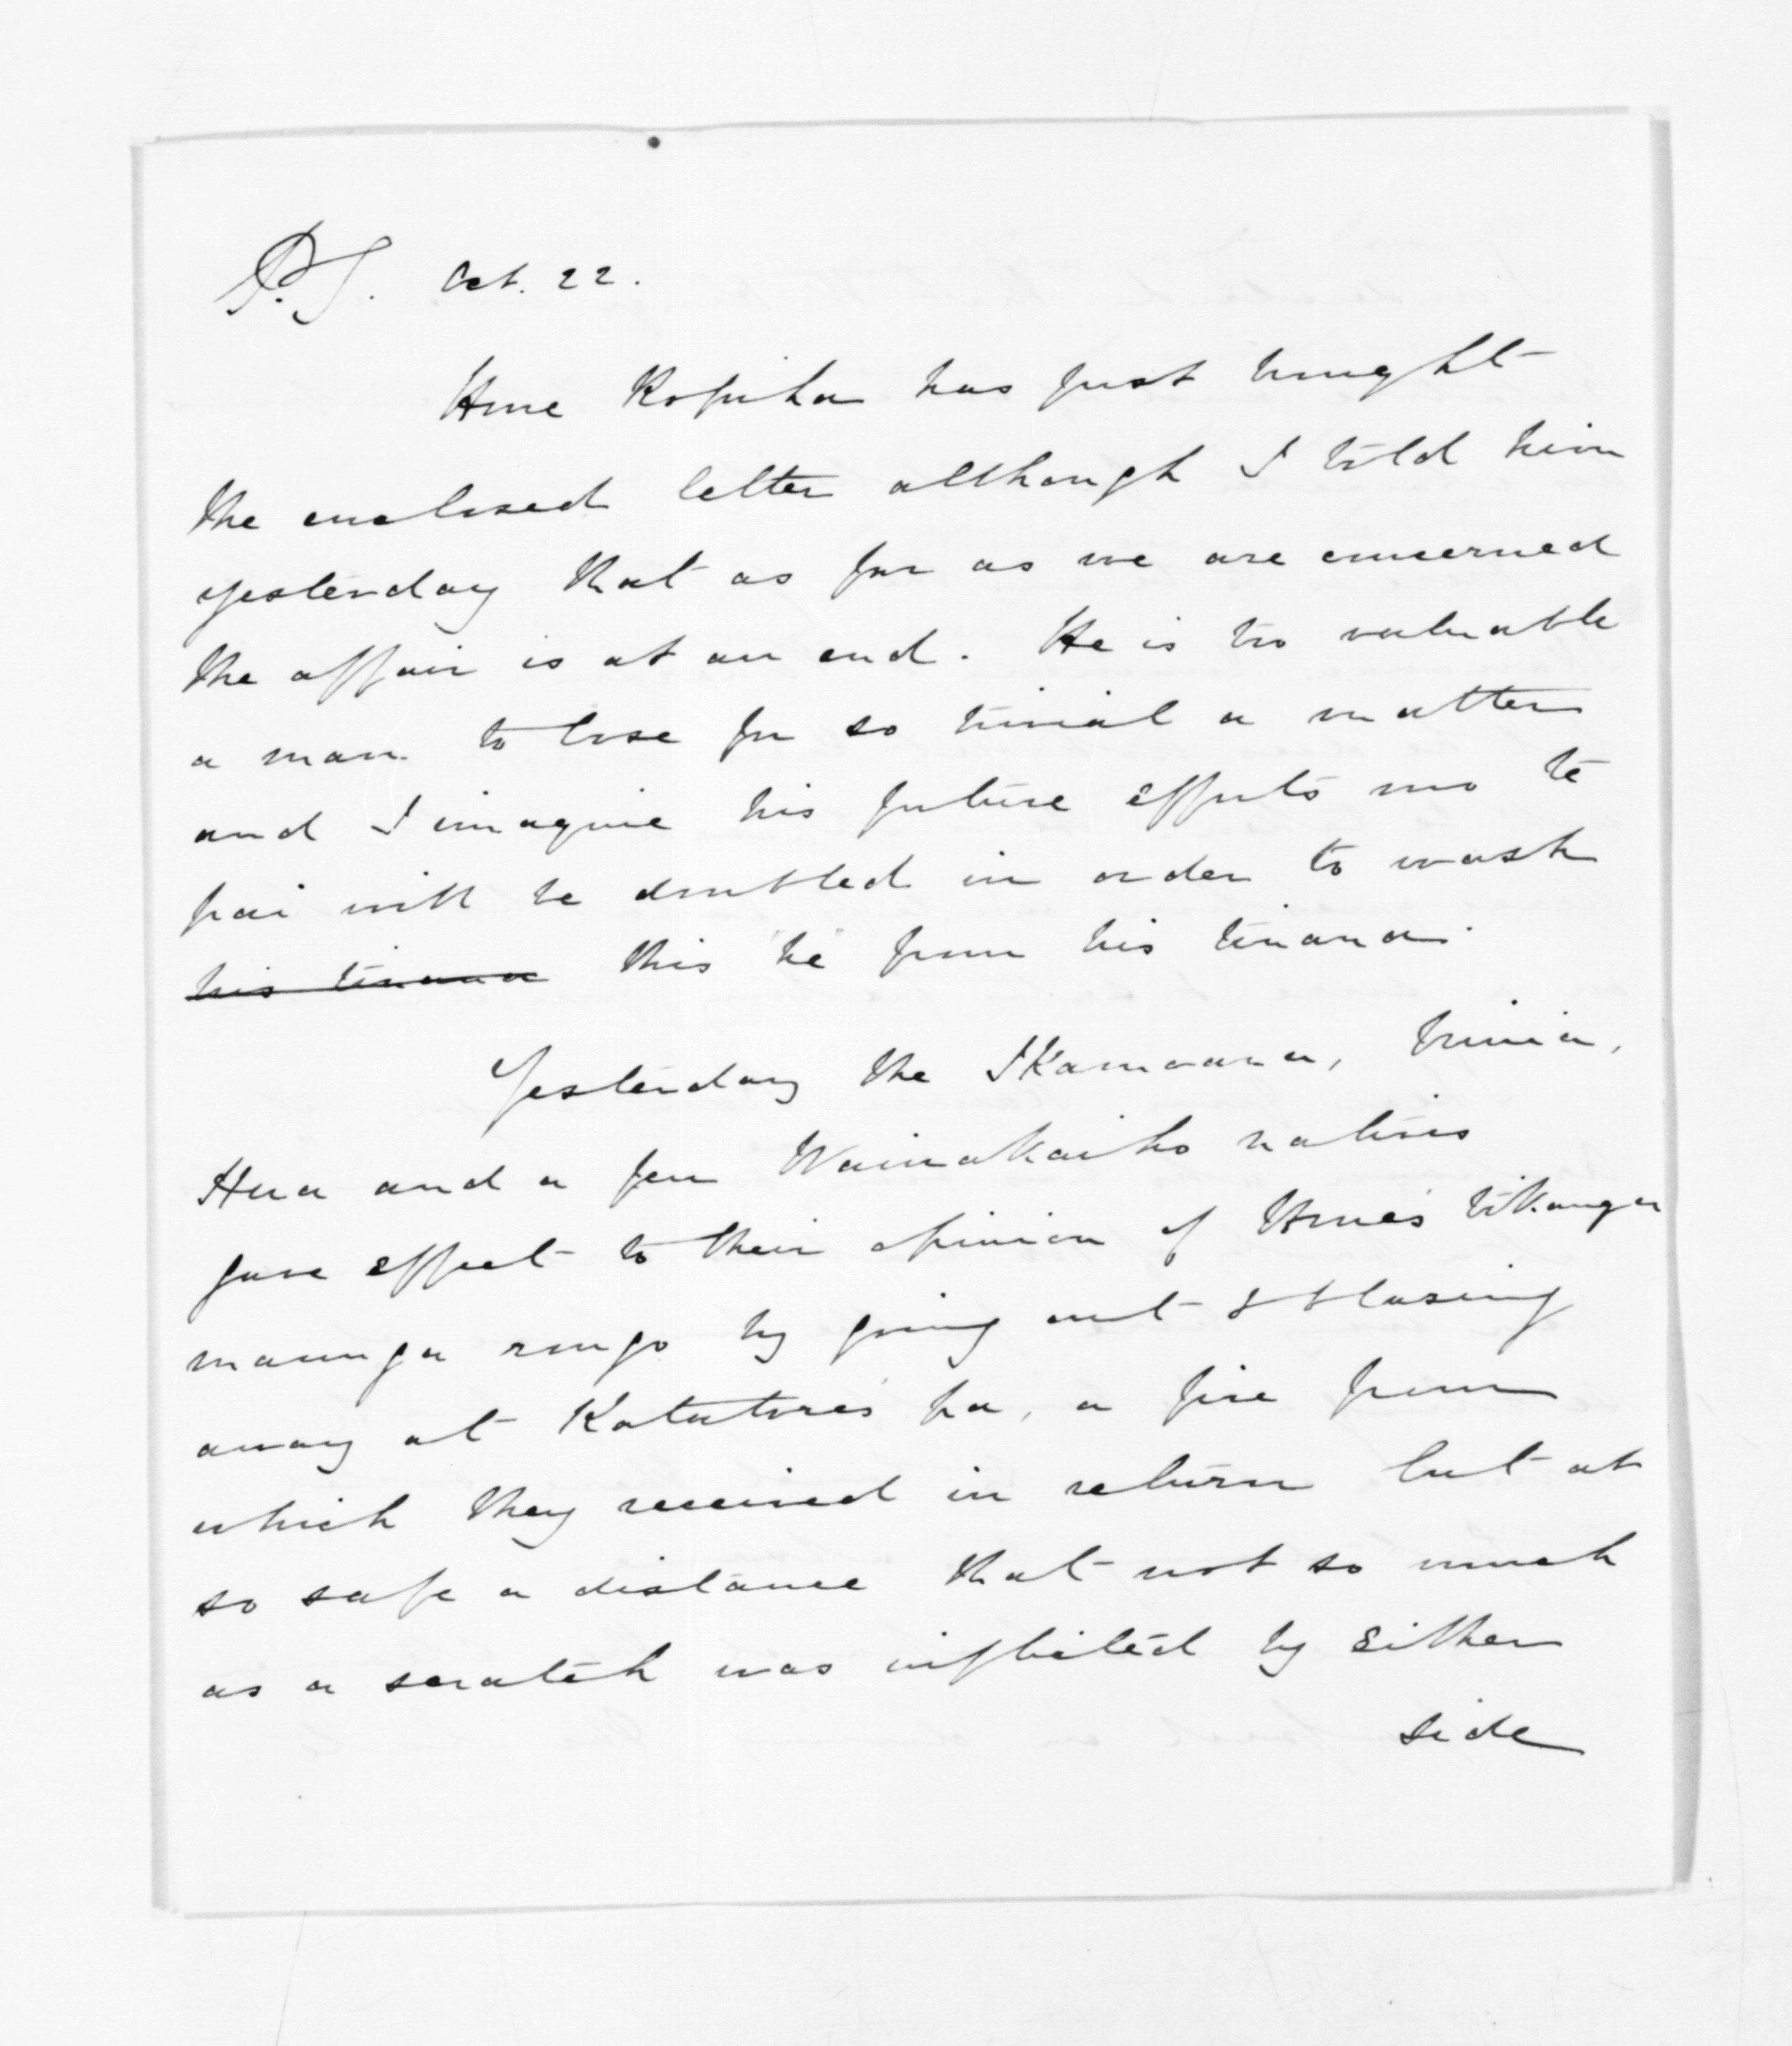 P.S. Oct. 22.
Hone Ropiha has just brought
the enclosed letter although I told him
yesterday that as far as we are concerned
the affair is at an end. He is too valuable
a man to lose for so trivial a matter
and I imagine his future efforts mo te
pai will be doubled in order to wash
his tinana this "he" from his tinana.
Yesterday the Ikamoana,
Hua and a few Waiwakaiho natives
gave effect to their opinion of Hone's tikanga
maunga rongo by going out & blazing
away at Katatore's pa, a fire from
which they received in return but at
so safe a distance that not so much
as a scratch was inflicted by either
side